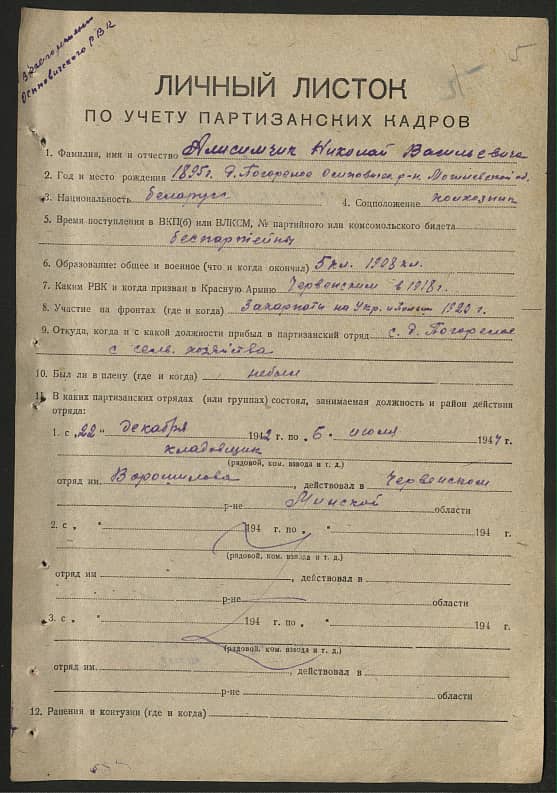 Осиповичского РВК
5
ЛИЧНЫЙ ЛИСТОК
ПО УЧЕТУ ПАРТИЗАНСКИХ КАДРОВ
1. Фамилия, имя и отчество Анисимчик Николай Васильевич
2. Год и место рождения 1895 г. Д. Погорелое Осиповичск р-н Могилевской об.
3. Национальность беларус 4. Соцположение колхозник
5. Время поступления в ВКП(б) или ВЛКСМ, № партийного или комсомольского билета
беспартейны
6. Образование: общее и военное (что и когда окончил) 5 кл. 1908
7. Каким РВК и когда призван в Красную Армию Червенским в 1918 г.
8. Участие на фронтах (где и когда) на Укр. 1920 г.
9. Откуда, когда и с какой должности прибыл в партизанский отряд с. Д. Погорелое
с сель. хозяйства
10. Был ли в плену (где и когда) небыл
11. В каких партизанских отрядах (или группах) состоял, занимаемая должность и район действия
отряда:
1. с „22" декабря 1942 г. по „6. июля 1944 г.
кладовщик
(рядовой, ком. взвода и т. д.)
отряд им. Ворошилова, действовал в Червенском
р-не Минской области
2. с „ " 194 г. по „ " 194 г.
(рядовой, ком. взвода и т. д.)
отряд им, действовал в
р-не области
3. с „ " 194 г. по „ " 194 г.
(рядовой, ком. взвода и т. д.)
отряд им., действовал в
р-не области
12. Ранения и контузии (где и когда)